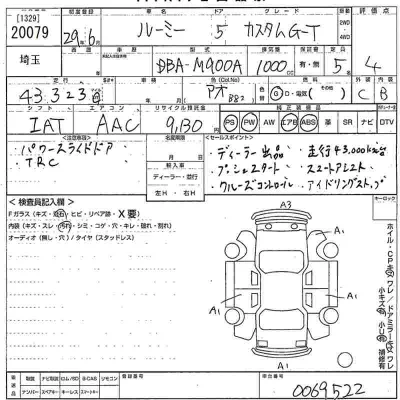 [1329]
20079
初度登録
29年6月
車名
ルーミー
ドア
5
グレード
カスタムG-T
2WD
4WD
評価点
埼玉
車歴
型式
DBA-M900A
排気量
1000
車検
有・無
定員
5
4
走行
43,323
色(Col.No)
アオ
B82
燃料
G・D・電気
(その他)
外
内
C
B
シフト
エアコン
リサイクル預託金
純正装備品
IAT
AAC
9,130
PS PW AW エアB ABS 革 SR ナビ DTV
<注意事項>
パワースライドドア
TRC
名変期限
輸入車
ディーラー・並行
左H ・ 右H
<セールスポイント>
・ディーラー出品
・走行43,000km台
・プッシュスタート
・スマートアシスト
・クルーズコントロール
・アイドリングストップ
<検査員記入欄>
Fガラス(キズ・飛石・ヒビ・リペア跡・X要)
内装(キズ・スレ・汚れ・シミ・コゲ・穴・キレ・破れ・割れ)
オーディオ(無し・穴)/タイヤ(スタッドレス)
A3
A1
A1
A1
A1
キーロック
ホイル・CPキズワレ/ドアミラーキズワレ
小キズ有
小U有
補修有
車両
ナンバー
取説
スペアキー
ナビ取説
キーレス
CD/ROM/SD
スマートキー
B-CAS
リモコン
登録番号
車台番号
0069522